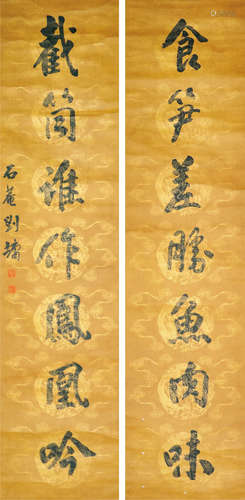 食笋差勝魚肉味
截筒誰作鳳凰吟
石菴劉墉